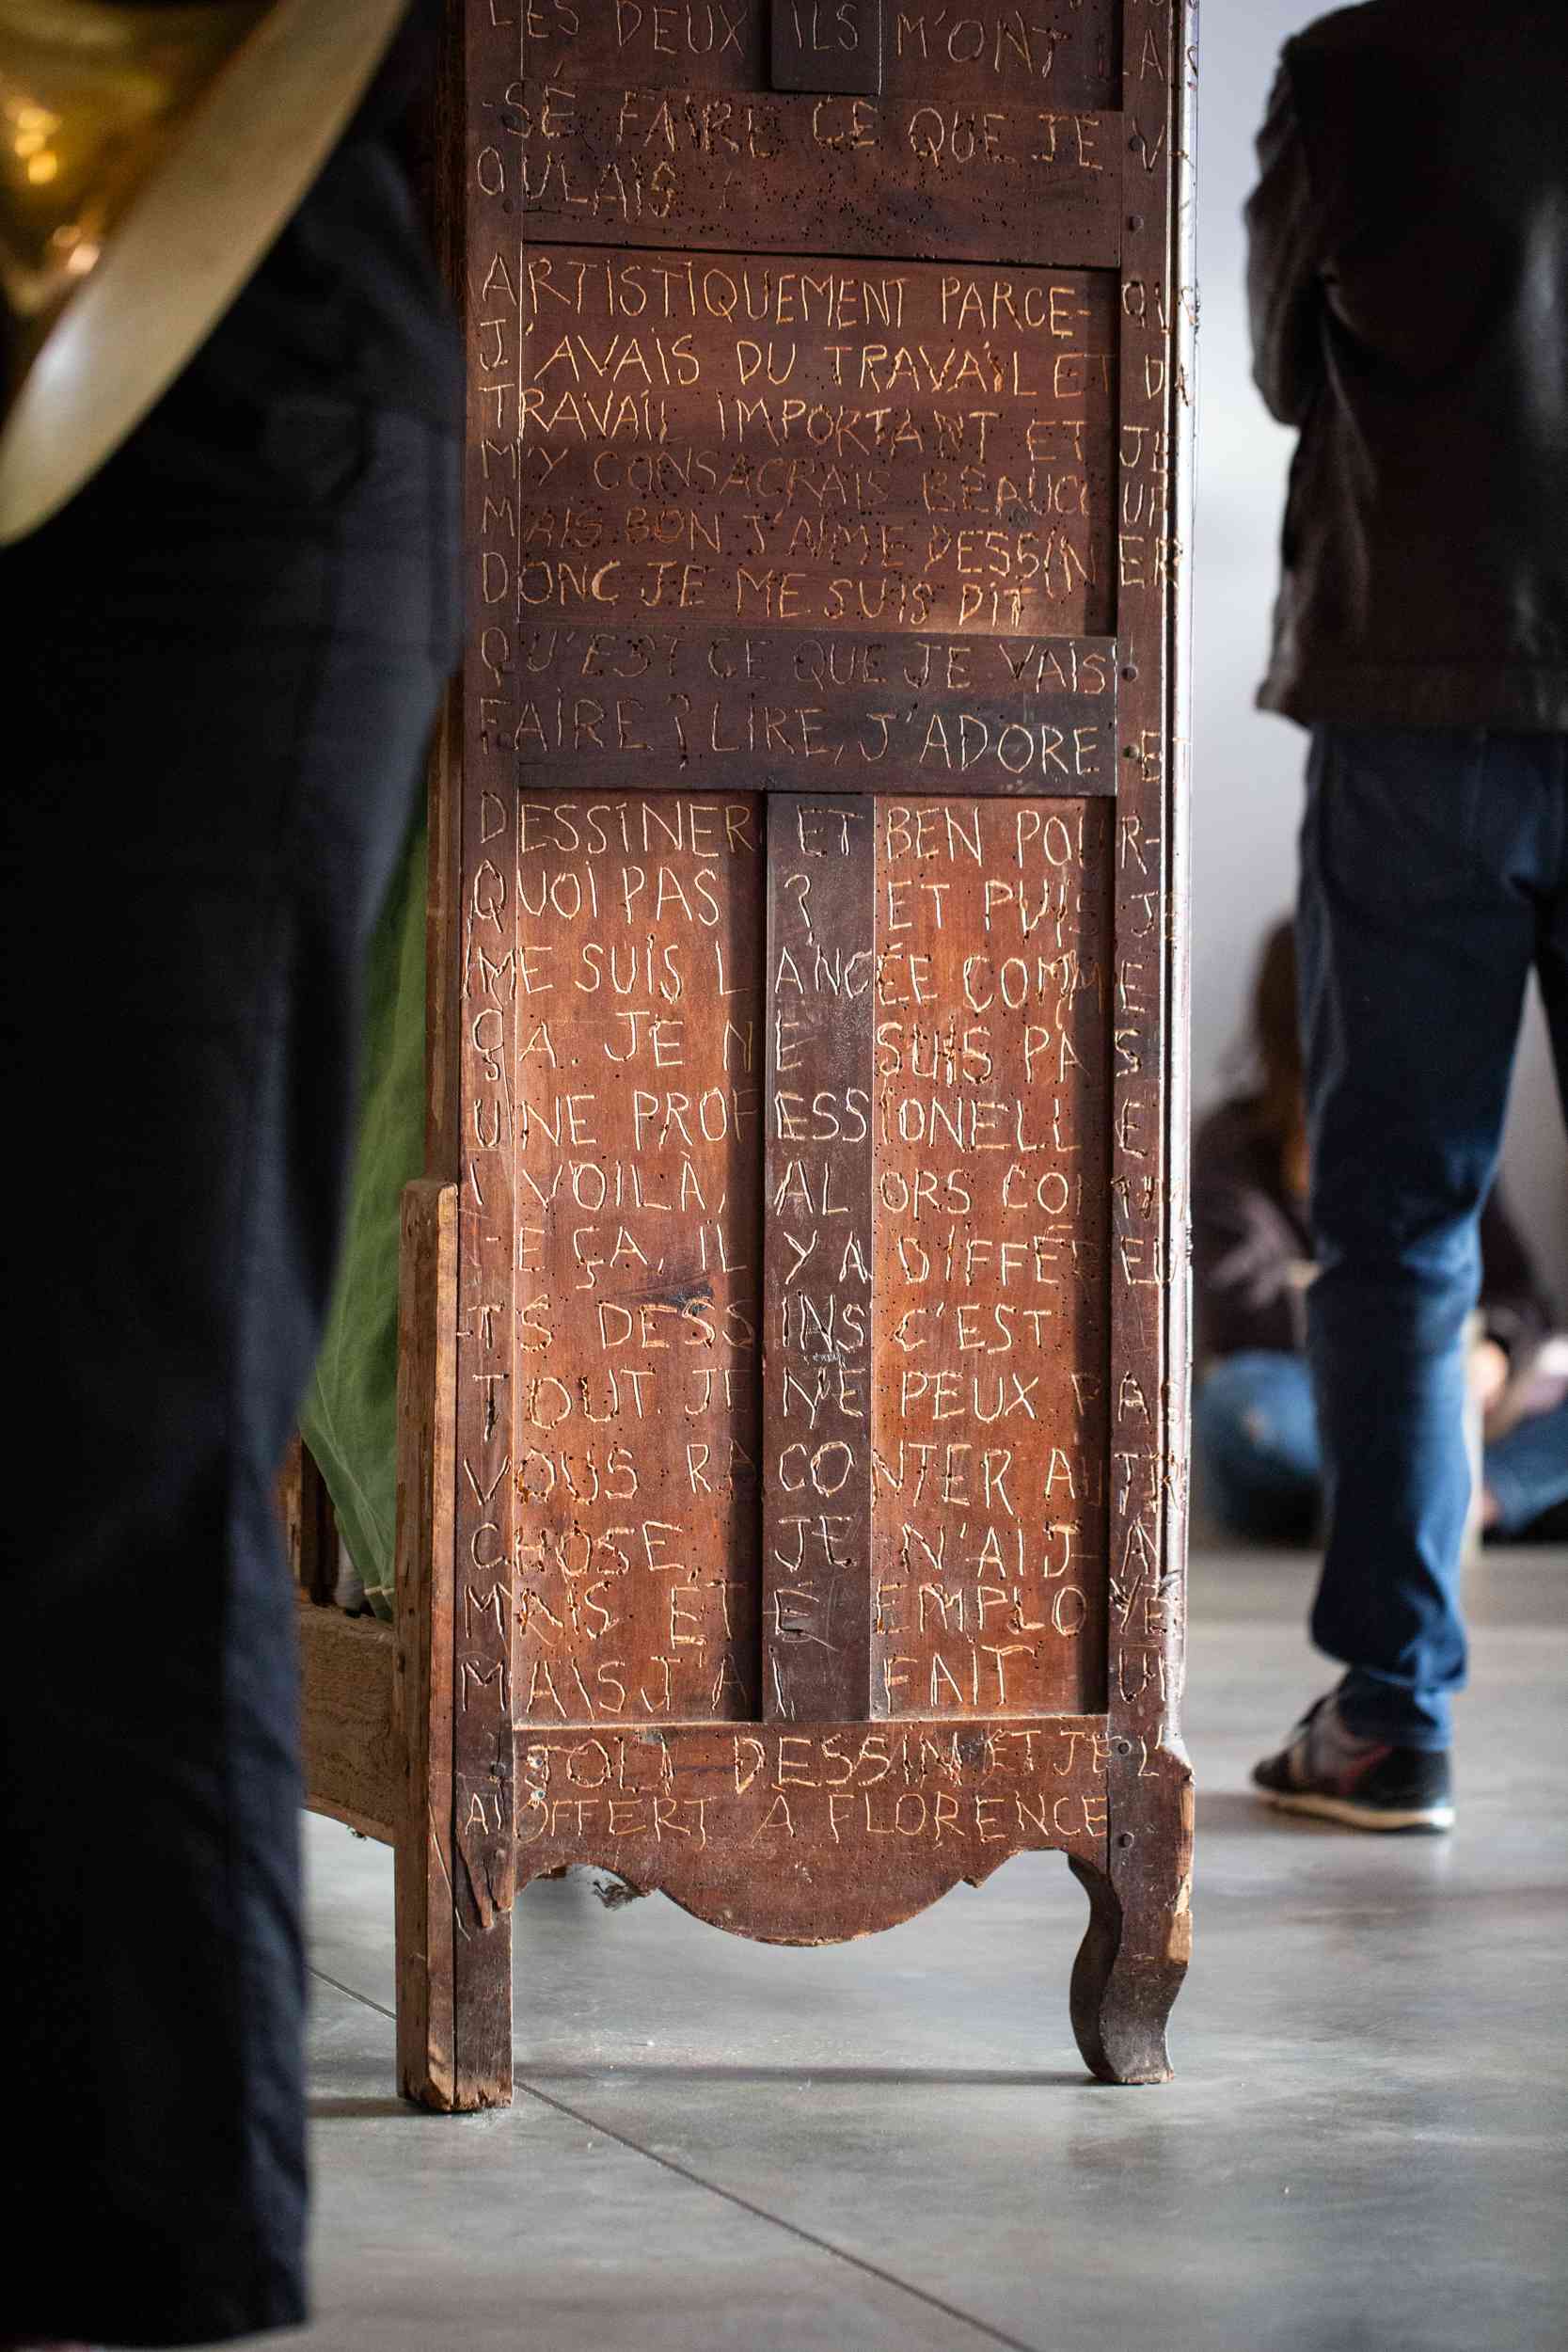 LES DEUX ILS M'ONT LAS
-SÉ FAIRE CE QUE JE V
OULAIS
ARTISTIQUEMENT PARCE-QUE
J'AVAIS DU TRAVAIL ET DA
TRAVAIL IMPORTANT ET JE
M'Y CONSACRAIS
MAIS BON J'AIME DESSINER
DONC JE ME SUIS DIT
QU'EST CE QUE JE VAIS
FAIRE? LIRE, J'ADORE ET
DESSINER ET BEN POUR-
QUOI PAS ? ET PUIS JE
ME SUIS LANCÉE COMME
ÇA. JE NE SUIS PAS
UNE PROFESSIONELLE
VOILÀ, ALORS
E ÇA, IL Y A
TS DESSINS C'EST
TOUT. JE NE PEUX PA
VOUS RACONTER
CHOSE, JE N'AI JA
MAIS ÉTÉ EMPLOYÉE
MAIS J'AI FAIT UN
JOLI DESSIN ET JE L'
AI OFFERT À FLORENCE